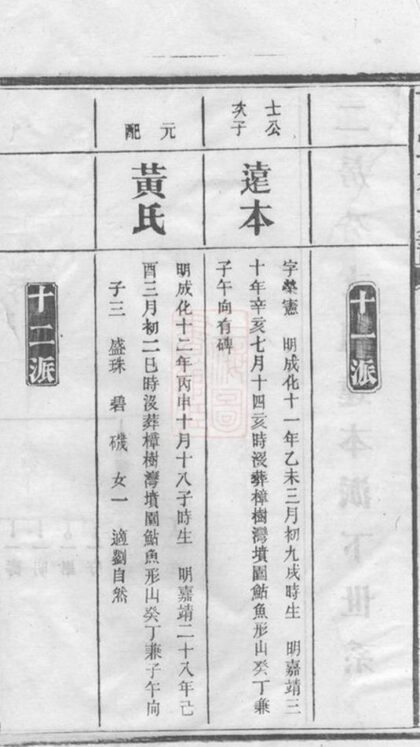 十一派
士公
次子
達本
字榮憲 明成化十一年乙未三月初九戌時生 明嘉靖三
十年辛亥七月十四亥時沒葬樟樹灣墳圍鮎魚形山癸丁兼
子午向有碑
元配
黃氏
明成化十二年丙申十月十八子時生 明嘉靖二十八年己
酉三月初二巳時沒葬樟樹灣墳圍鮎魚形山癸丁兼子午向
子三 盛珠 碧 磯 女一 適劉自然
十二派